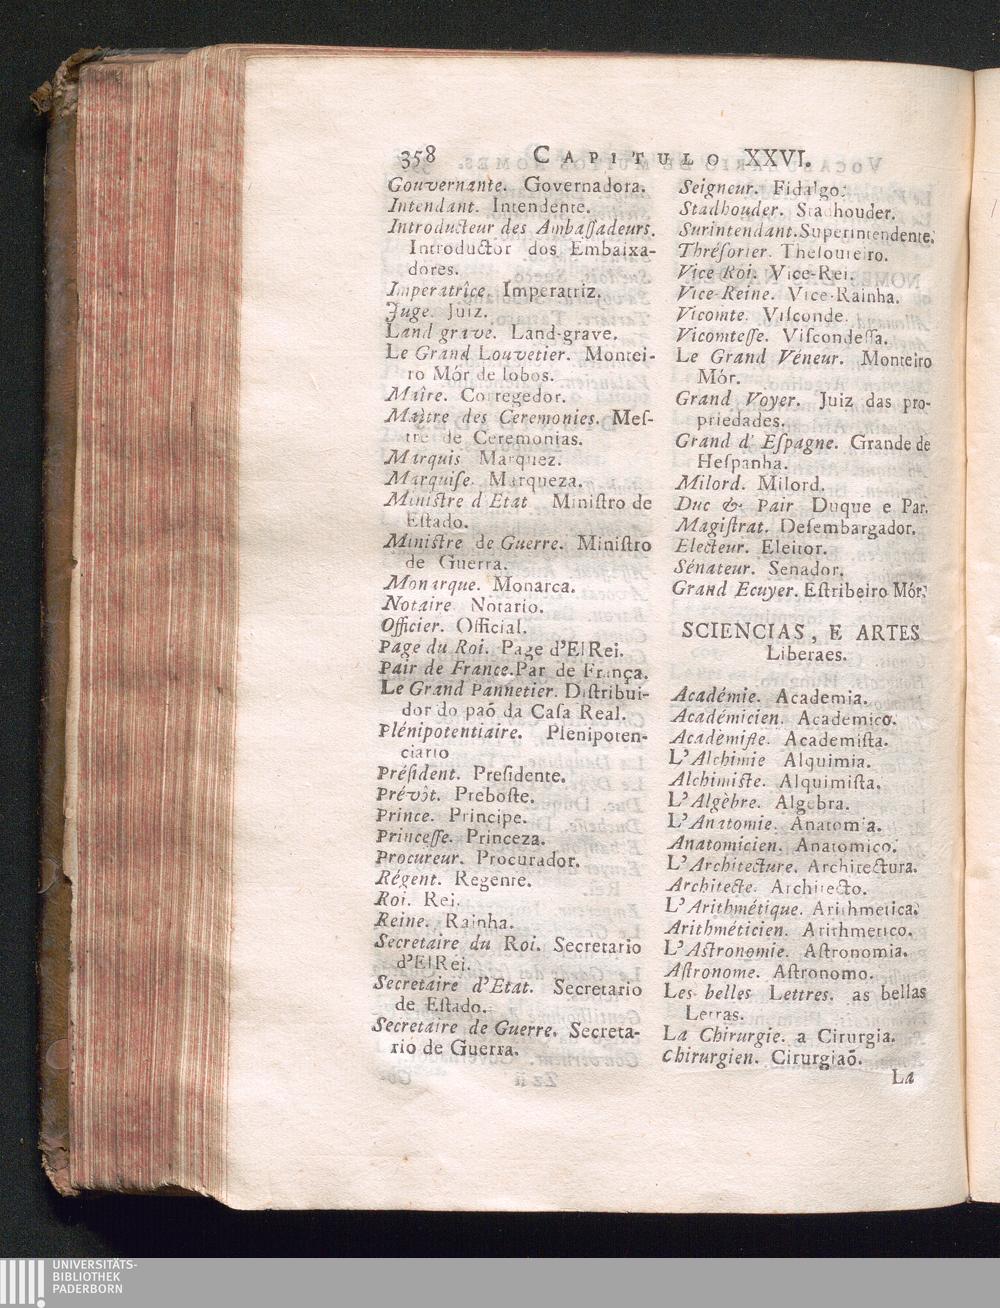 358 CAPITULO XXVI.
Gouvernante. Governadora.
Intendant. Intendente.
Introducteur des Ambaſſadeurs.
Introductor dos Embaixa-
dores.
Imperatrîce. Imperatriz.
Juge. Juiz.
Land grave. Land-grave.
Le Grand Louvetier. Montei-
ro Mór de lobos.
Maîre. Corregedor.
Maître des Ceremonies. Meſ-
tre de Ceremonias.
Marquis Marquez.
Marquiſe. Marqueza.
Miniſtre d Etat Miniſtro de
Eſtado.
Miniſtre de Guerre. Miniſtro
de Guerra.
Monarque. Monarca.
Notaire Notario.
Officier. Official.
Page du Roi. Page d'El Rei.
Pair de France. Par de França.
Le Grand Pannetier. Diſtribui-
dor do paõ da Caſa Real.
Plénipotentiaire. Plenipoten-
ciario
Préſident. Preſidente.
Prévôt. Preboſte.
Prince. Principe.
Princeſſe. Princeza.
Procureur. Procurador.
Régent. Regente.
Roi. Rei.
Reine. Rainha.
Secretaire du Roi. Secretario
d'El Rei.
Secretaire d'Etat. Secretario
de Eſtado.
Secretaire de Guerre. Secreta-
rio de Guerra.
Seigneur. Fidalgo.
Stadhouder. Stadhouder.
Surintendant. Superintendente.
Thréſorier. Theſoureiro.
Vice Roi. Vice-Rei.
Vice-Reine. Vice-Rainha.
Vicomte. Viſconde.
Vicomteſſe. Viſcondeſſa.
Le Grand Véneur. Monteiro
Mór.
Grand Voyer. Juiz das pro-
priedades.
Grand d' Eſpagne. Grande de
Heſpanha.
Milord. Milord.
Duc & Pair Duque e Par.
Magiſtrat. Deſembargador.
Electeur. Eleitor.
Sénateur. Senador.
Grand Ecuyer. Eſtribeiro Mór.
SCIENCIAS, E ARTES
Liberaes.
Académie. Academia.
Académicien. Academico.
Acadèmiſte. Academiſta.
L'Alchimie Alquimia.
Alchimiſte. Alquimiſta.
L'Algèbre. Algebra.
L'Anatomie. Anatomia.
Anatomicien. Anatomico.
L'Architecture. Architectura.
Architecte. Architecto.
L'Arithmétique. Arithmetica.
Arithméticien. Arithmetico.
L'Aſtronomie. Aſtronomia.
Aſtronome. Aſtronomo.
Les belles Lettres. as bellas
Letras.
La Chirurgie. a Cirurgia.
Chirurgien. Cirurgiaõ.
La
UNIVERSITÄTS-
BIBLIOTHEK
PADERBORN